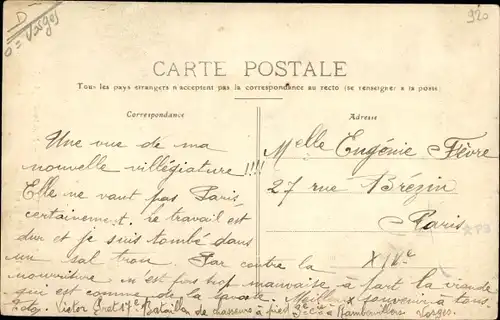 D
o = Vosges
920
CARTE POSTALE
Tous les pays étrangers n'acceptent pas la correspondance au recto (se renseigner à la poste
Correspondance
Adresse
Une vue de ma
nouvelle villégiature !!!!
Elle ne vaut pas Paris
certainement. le travail est
dur et je suis tombé dans
un sal trou. Par contre la
nourriture n'est pas trop mauvaise, à part la viande
qui est comme de la Meilleur souvenir à tous.
Victor 17e Bataillon de chasseurs à pied à Rambervillers Vosges.
Melle Eugénie Fèvre
27 rue Brézin
Paris
XIVe